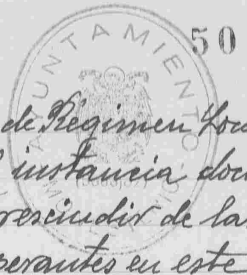 50
AYUNTAMIENTO
de Régimen Loc
instancia doc
rescindir de la
perantes en este